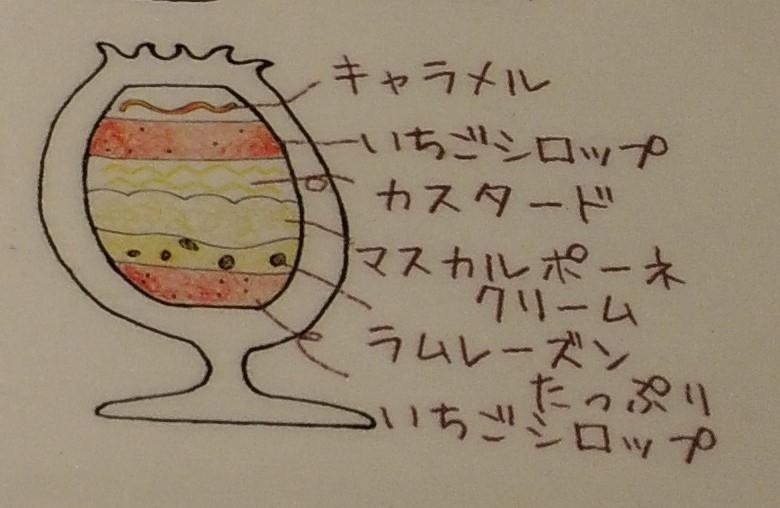 キャラメル
いちごシロップ
カスタード
マスカルポーネ
クリーム
ラムレーズン
たっぷり
いちごシロップ